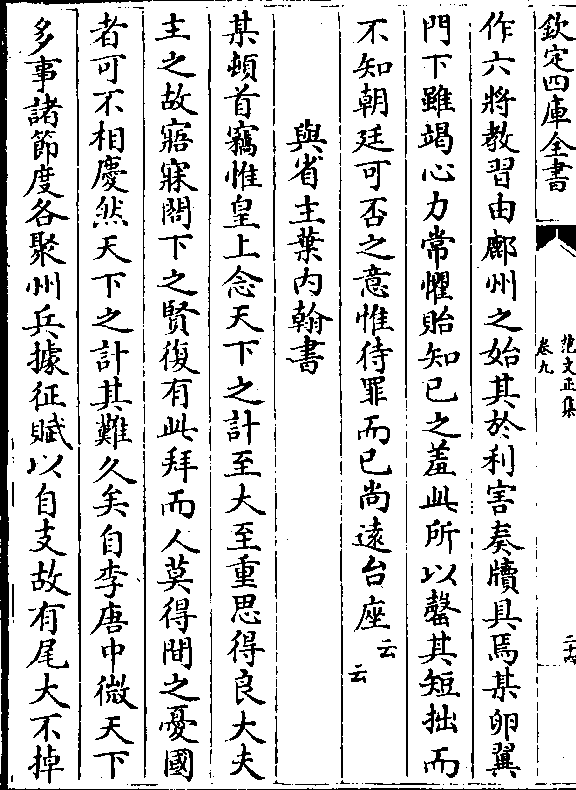 欽定四庫全書
范文正集
卷九
二十六
作六將教習由鄜州之始其於利害奏牘具焉某卵翼
門下雖竭心力常懼貽知已之羞此所以罄其短拙而
不知朝廷可否之意惟待罪而已尚遠台座云云
與省主葉内翰書
某頓首竊惟皇上念天下之計至大至重思得良大夫
主之故寤寐閤下之賢復有此拜而人莫得間之憂國
者可不相慶然天下之計其難久矣自李唐中微天下
多事諸節度各聚州兵據征賦以自支故有尾大不掉